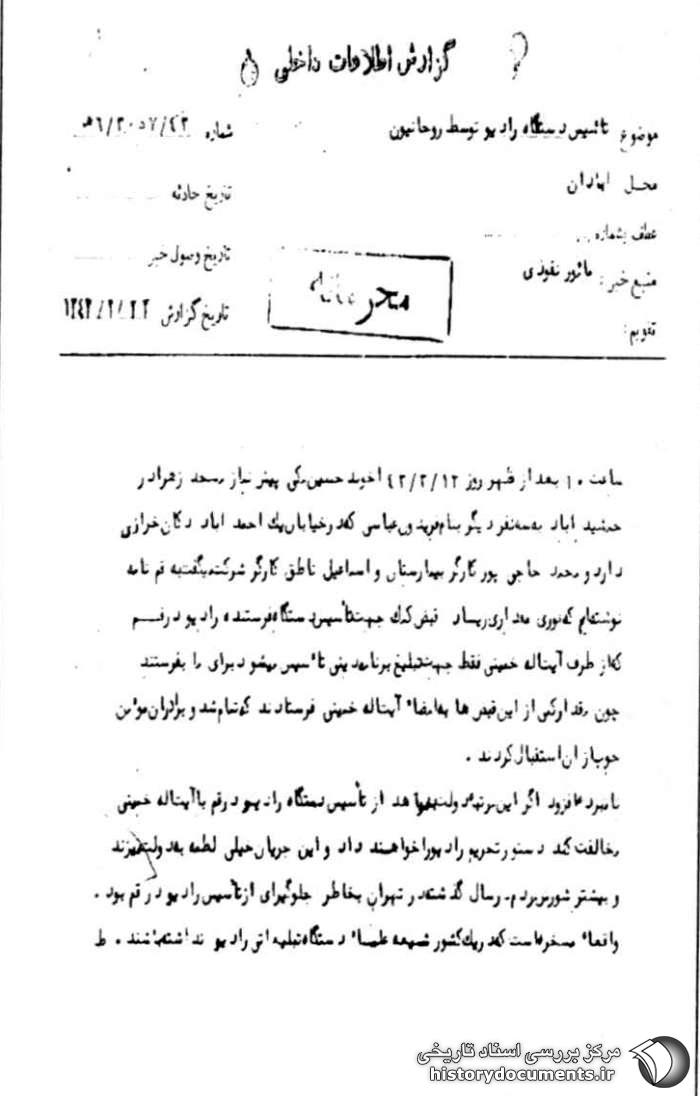 گزارش اطلاعات داخلی
موضوع تاسیس دستگاه رادیو توسط روحانیون
شماره ۶/۲۰۵۷/۴۲ هـ
محل ابادان
تاریخ حادثه
عطف بشماره
تاریخ وصول خبر
منبع خبر : مأمور نفوذی
محرمانه
تاریخ گزارش ۱۳۴۲/۲/۲۲
تقویم :
ساعت ۱۰ بعد از ظهر روز ۴۲/۲/۱۲ اخوند حسین مکی پیش نماز مسجد زهرا در
جمشید اباد به سه نفر دیگر بنام فریدون عباسی که در خیابان یک احمد اباد دکان خرازی
دارد و محمد حاجی پور کارگر بیمارستان و اسماعیل ناطق کارگر شرکت میگفت به قم نامه
نوشته‌ایم که فوری مقداری رساد قبض کمک جهت تأسیس دستگاه فرستنده رادیو در قــم
که از طرف آیت‌اله خمینی فقط جهت تبلیغ برنامه دینی تاسیس میشود برای ما بفرستند
چون مقدار کمی از این قبض ها به امضاء آیت‌اله خمینی فرستادند که تمام شد و برادران مؤمن
خوب از ان استقبال کردند .
نامبرده افزود اگر این مرتبه دولت بخواهد از تأسیس دستگاه رادیو در قم با آیت‌اله خمینی
مخالفت کند دستور تحریم رادیو را خواهند داد و این جریان خیلی لطمه به دولت میزند
و بیشتر شورش مردم در سال گذشته در تهران بخاطر جلوگیری از تأسیس رادیو در قم بود .
واقعاً مسخره است که در یک کشور شیعه علماء دستگاه تبلیغاتی رادیو نداشته باشند . ط
مرکز بررسی اسناد تاریخی
historydocuments.ir